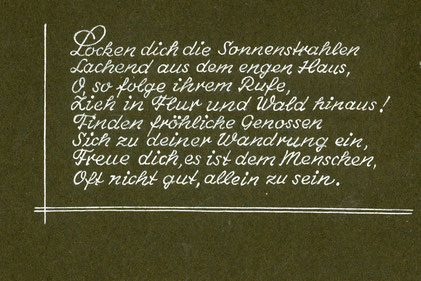 Locken dich die Sonnenstrahlen
Lachend aus dem engen Haus,
O, so folge ihrem Rufe,
Zieh in Flur und Wald hinaus!
Finden fröhliche Genossen
Sich zu deiner Wandrung ein,
Freue dich, es ist dem Menschen,
Oft nicht gut, allein zu sein.